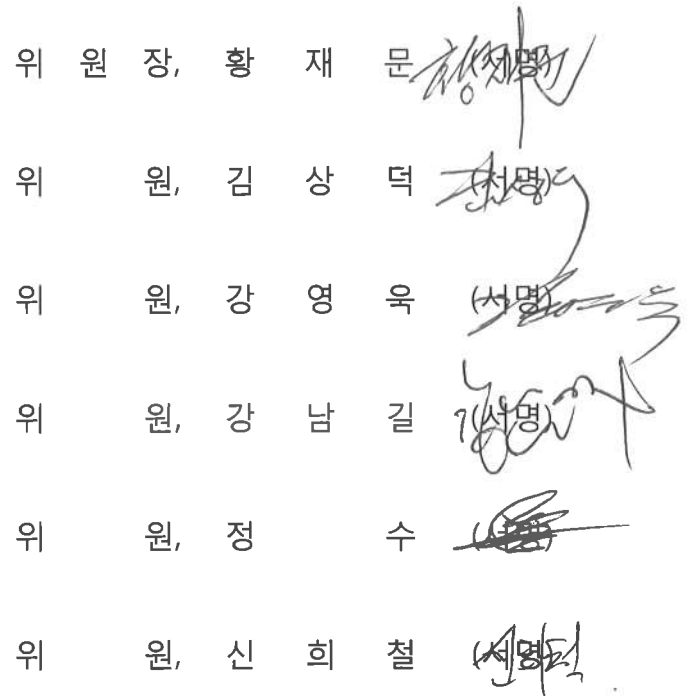 위 원 장, 황 재 문 (서명)
위 원, 김 상 덕 (서명)
위 원, 강 영 욱 (서명)
위 원, 강 남 길 (서명)
위 원, 정 수 (서명)
위 원, 신 희 철 (서명)